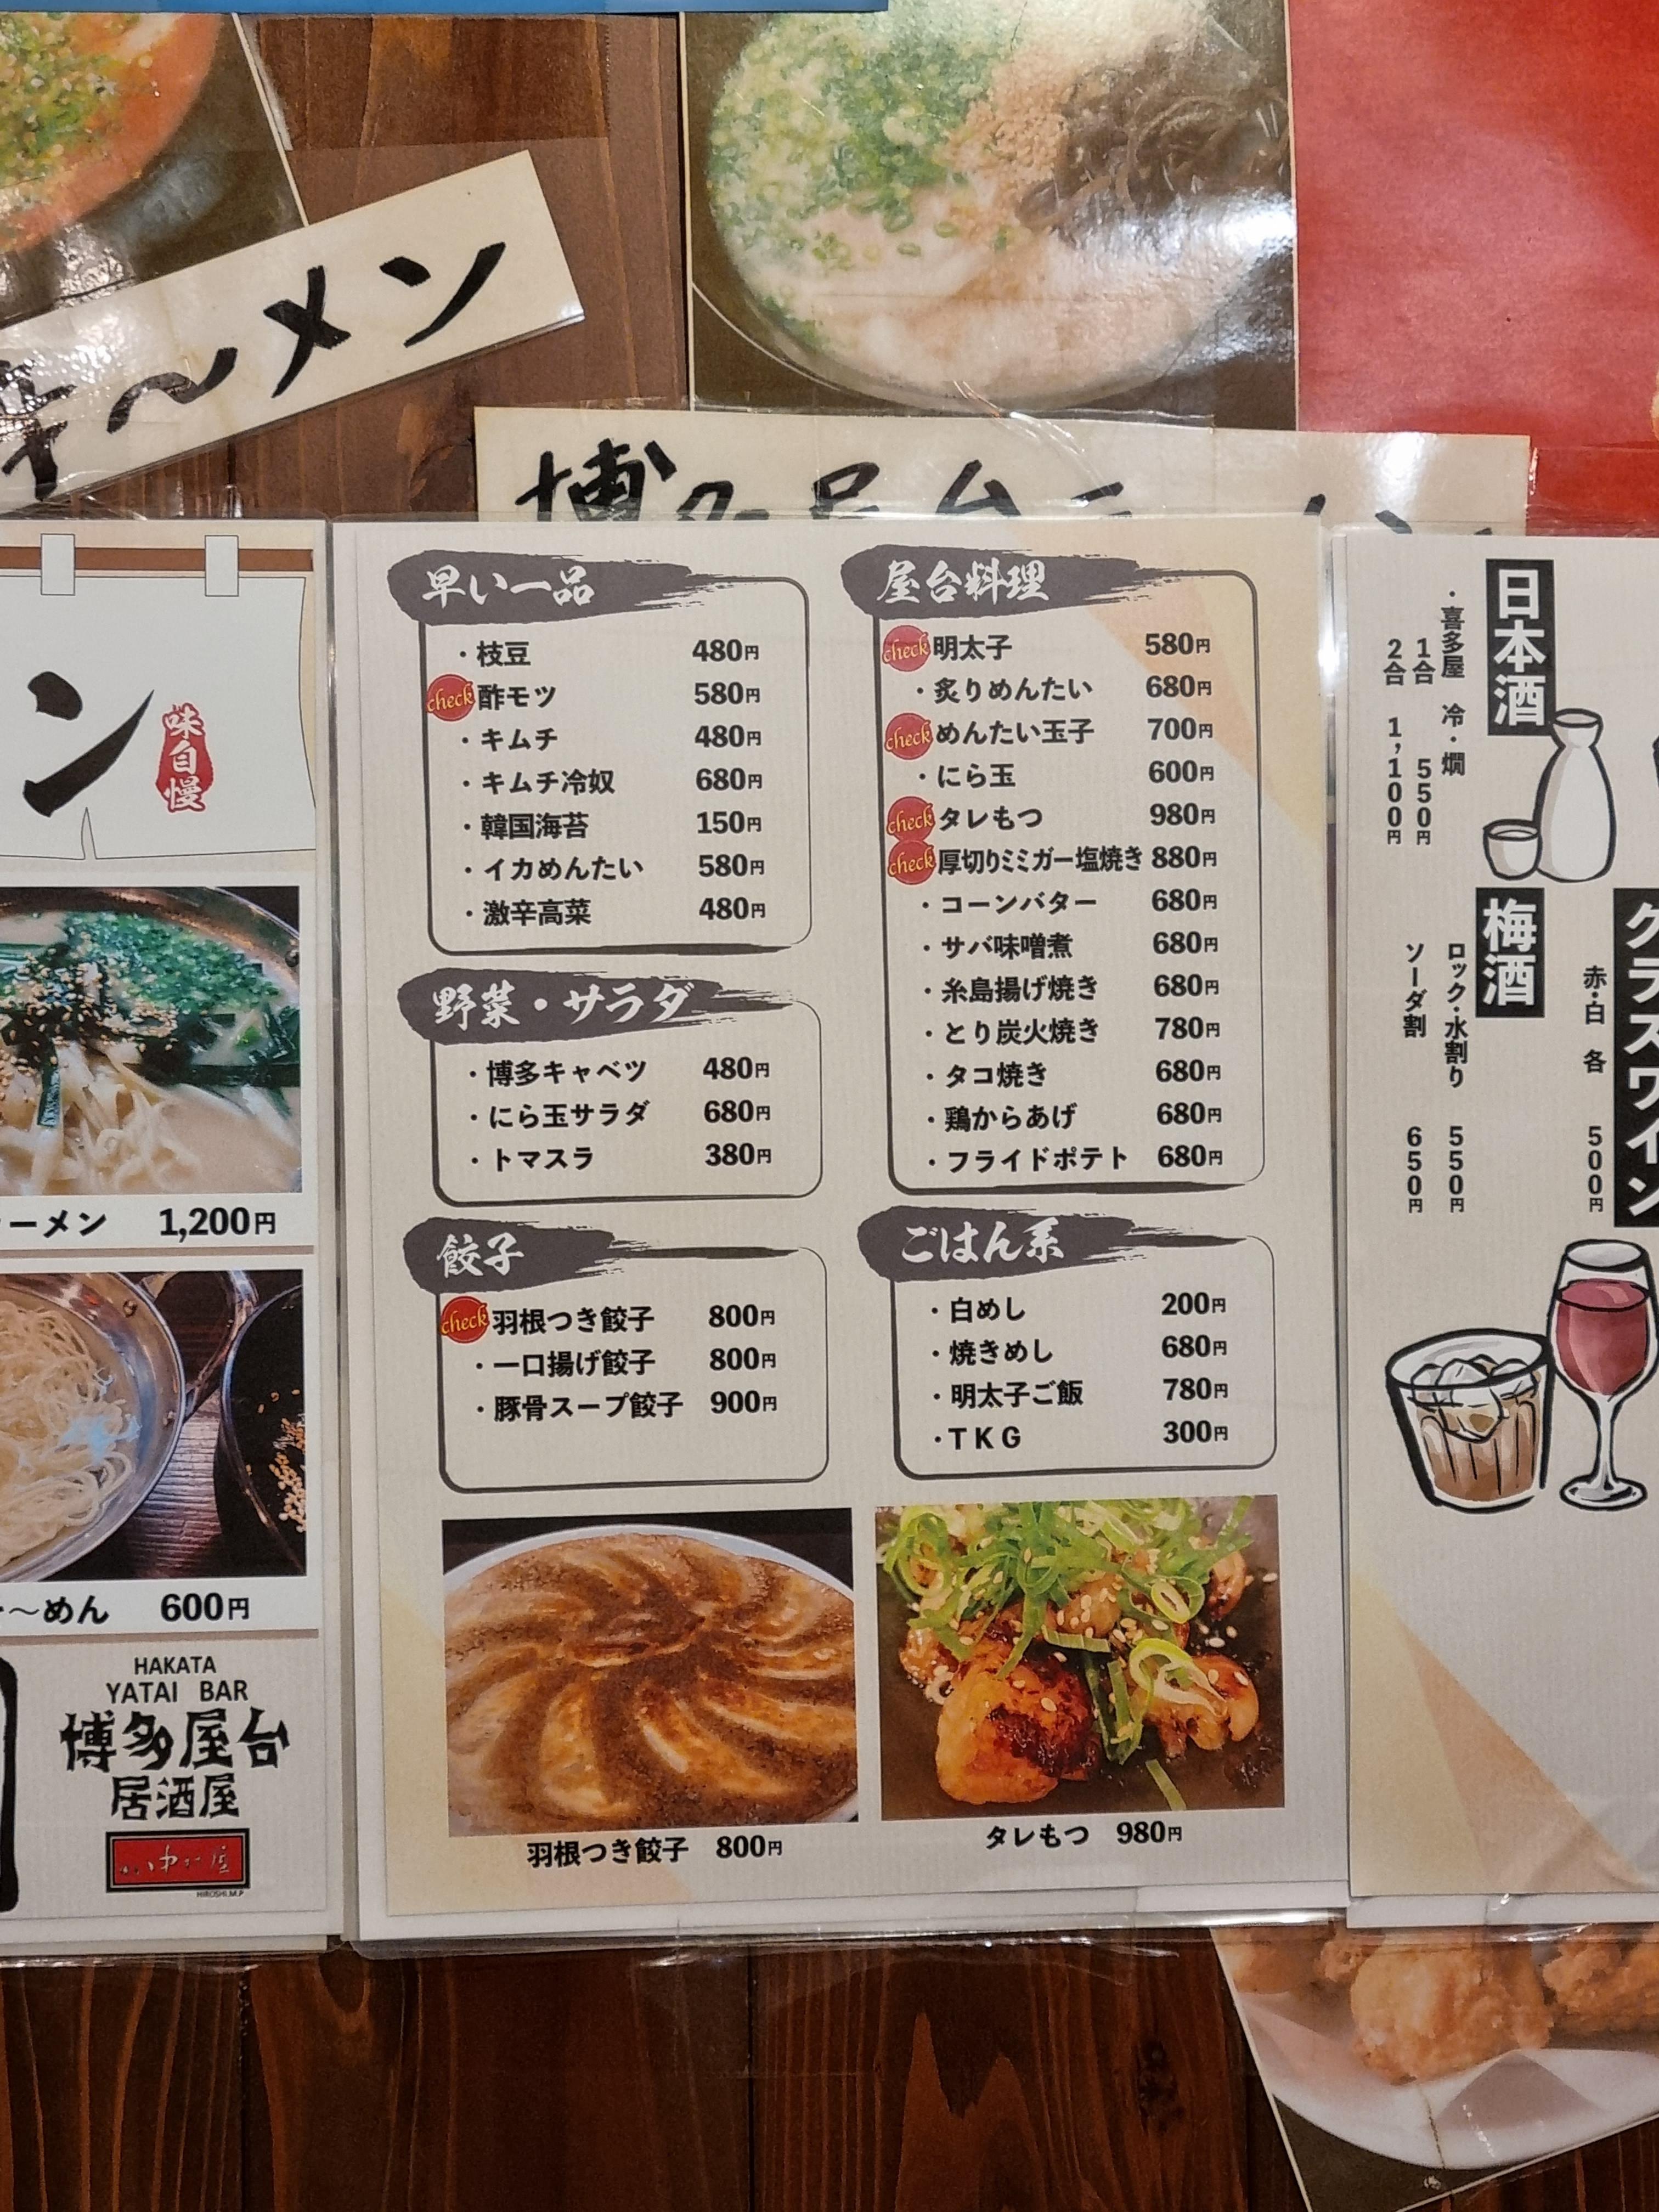 メン
博多屋台ラ
ン
味自慢
ーメン 1,200円
〜めん 600円
HAKATA
YATAI BAR
博多屋台
居酒屋
HIROSHI.M.P
早い一品
・枝豆 480円
check 酢モツ 580円
・キムチ 480円
・キムチ冷奴 680円
・韓国海苔 150円
・イカめんたい 580円
・激辛高菜 480円
野菜・サラダ
・博多キャベツ 480円
・にら玉サラダ 680円
・トマスラ 380円
餃子
check 羽根つき餃子 800円
・一口揚げ餃子 800円
・豚骨スープ餃子 900円
屋台料理
check 明太子 580円
・炙りめんたい 680円
check めんたい玉子 700円
・にら玉 600円
check タレもつ 980円
check 厚切りミミガー塩焼き 880円
・コーンバター 680円
・サバ味噌煮 680円
・糸島揚げ焼き 680円
・とり炭火焼き 780円
・タコ焼き 680円
・鶏からあげ 680円
・フライドポテト 680円
ごはん系
・白めし 200円
・焼きめし 680円
・明太子ご飯 780円
・TKG 300円
羽根つき餃子 800円
タレもつ 980円
日本酒
・喜多屋 冷・燗
1合 550円
2合 1,100円
グラスワイン
赤・白 各 500円
梅酒
ロック・水割り 550円
ソーダ割 650円